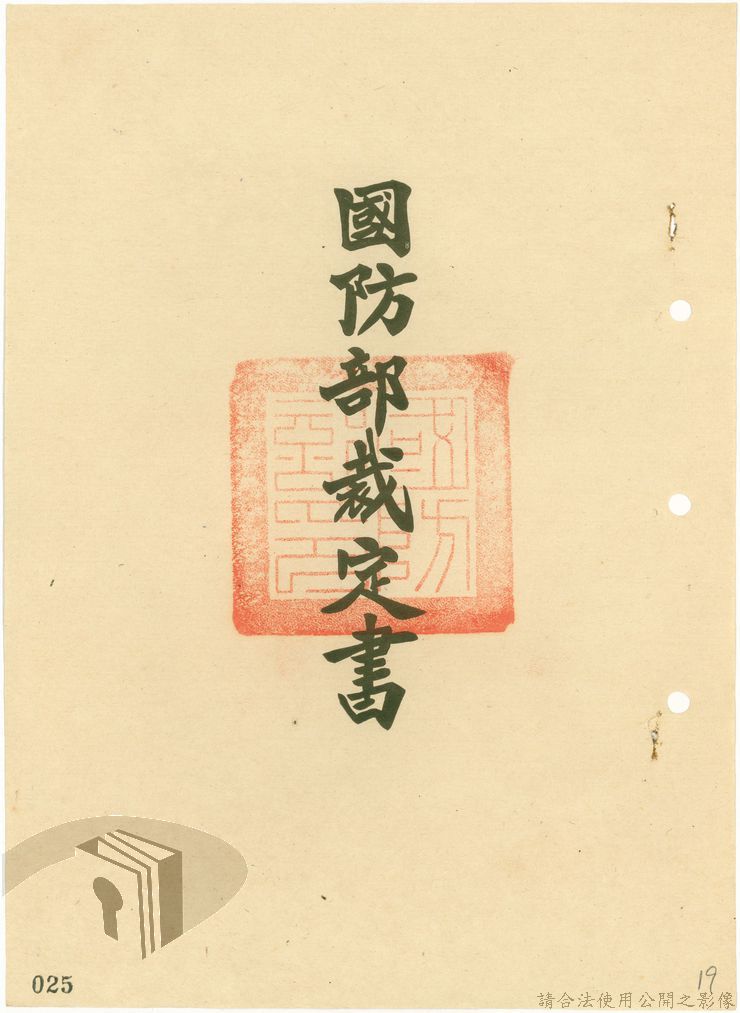 國防部裁定書
025
19
請合法使用公開之影像